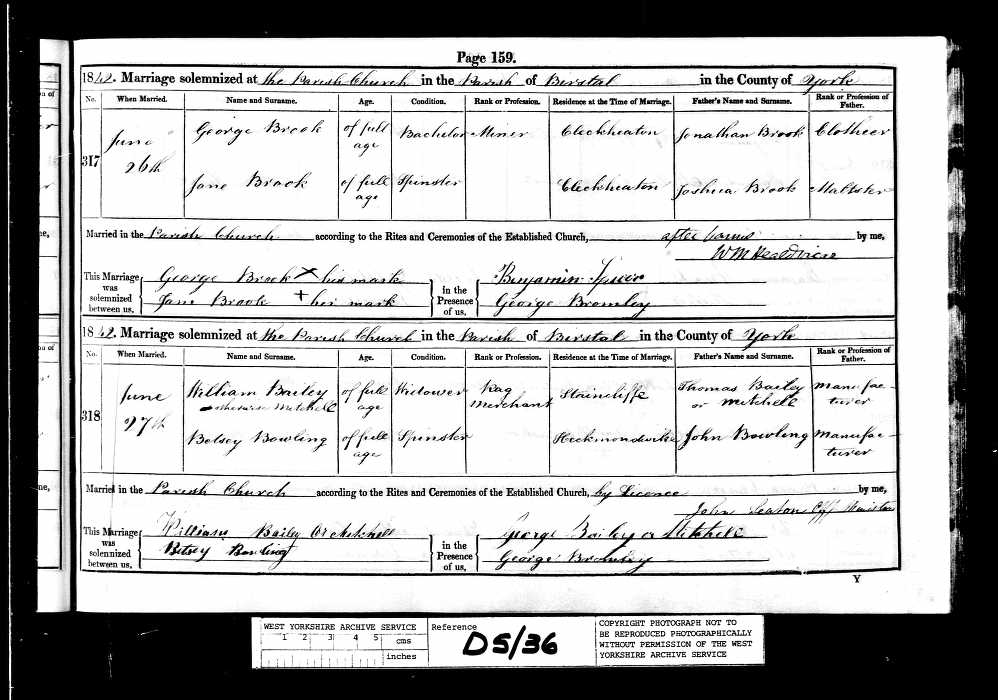 Page 159.
1842. Marriage solemnized at the Parish Church in the Parish of Birstal in the County of York
No. When Married. Name and Surname. Age. Condition. Rank or Profession. Residence at the Time of Marriage. Father's Name and Surname. Rank or Profession of Father.
317 June 26th George Brook of full age Bachelor Miner Cleckheaton Jonathan Brook Clothier
Jane Brook of full age Spinster Cleckheaton Joshua Brook Maltster
Married in the Parish Church according to the Rites and Ceremonies of the Established Church, after banns by me,
This Marriage was solemnized between us,
George Brook X his mark
Jane Brook + her mark
in the Presence of us,
Benjamin
George Bromley
1842. Marriage solemnized at the Parish Church in the Parish of Birstal in the County of York
No. When Married. Name and Surname. Age. Condition. Rank or Profession. Residence at the Time of Marriage. Father's Name and Surname. Rank or Profession of Father.
318 June 27th William Bailey otherwise Mitchell of full age Widower Rag Merchant Staincliffe Thomas Bailey or Mitchell Manufacturer
Betsey Bowling of full age Spinster Heckmondwike John Bowling Manufacturer
Married in the Parish Church according to the Rites and Ceremonies of the Established Church, by Licence by me,
John Seaton Offg Minister
This Marriage was solemnized between us,
William Bailey or Mitchell
Betsy Bowling
in the Presence of us,
George Bailey or Mitchell
George Bromley
Y
WEST YORKSHIRE ARCHIVE SERVICE
1 2 3 4 5 cms
inches
Reference
D5/36
COPYRIGHT PHOTOGRAPH NOT TO
BE REPRODUCED PHOTOGRAPHICALLY
WITHOUT PERMISSION OF THE WEST
YORKSHIRE ARCHIVE SERVICE